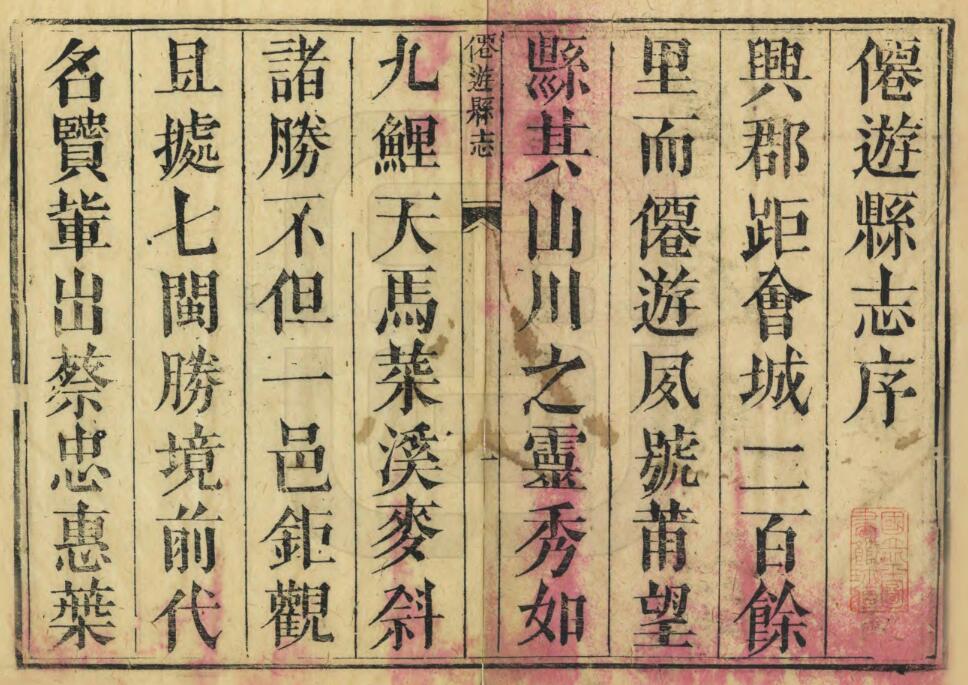 僊遊縣志序
興郡距會城二百餘
里而僊遊夙號莆望
縣其山川之靈秀如
僊遊縣志
一
九鯉天馬菜溪麥斜
諸勝不但一邑鉅觀
且㨿七閩勝境前代
名賢輩出蔡忠惠葉